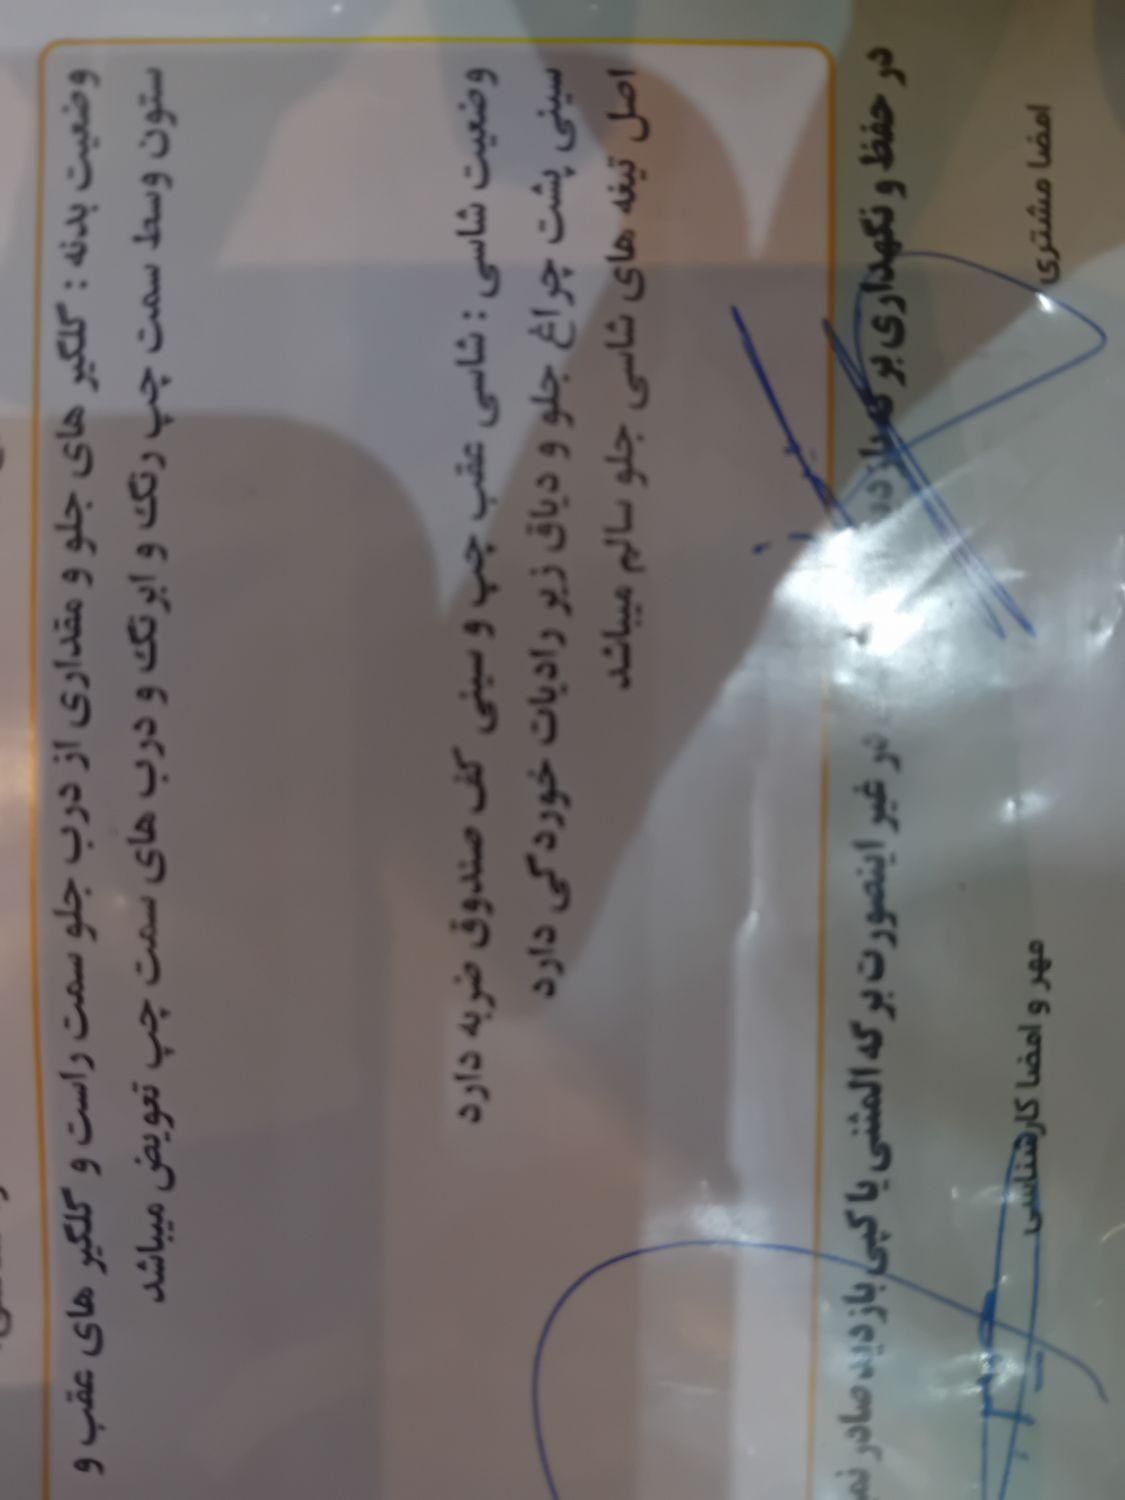 وضعیت بدنه : گلگیر های جلو و مقداری از درب جلو سمت راست و گلگیر های عقب و
ستون وسط سمت چپ رنگ و ابرنگ و درب های سمت چپ تعویض میباشد
وضعیت شاسی : شاسی عقب چپ و سینی کف صندوق ضربه دارد
سینی پشت چراغ جلو و دیاق زیر رادیات خوردگی دارد
اصل تیغه های شاسی جلو سالم میباشد
در حفظ و نگهداری بر که باز در غیر اینصورت بر که المثنی یا کپی بازدید صادر
امضا مشتری
مهر و امضا کارشناسی